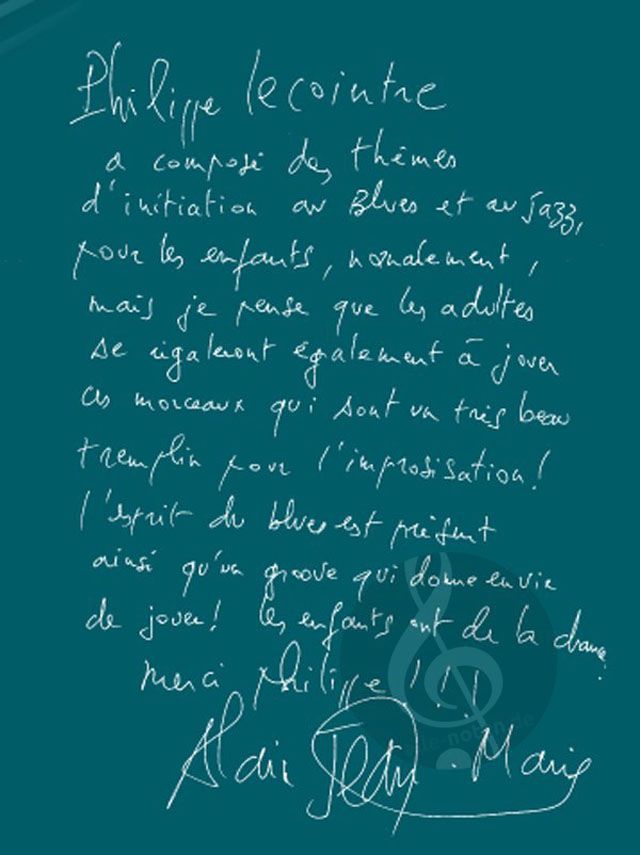 Philippe Lecointre
a composé des thèmes
d'initiation au Blues et au Jazz,
pour les enfants, normalement,
mais je pense que les adultes
se régaleront également à jouer
ces morceaux qui sont un très beau
tremplin pour l'improvisation!
l'esprit du blues est présent
ainsi qu'un groove qui donne envie
de jouer! les enfants ont de la chance
merci Philippe!!!
Alain Jean-Marie